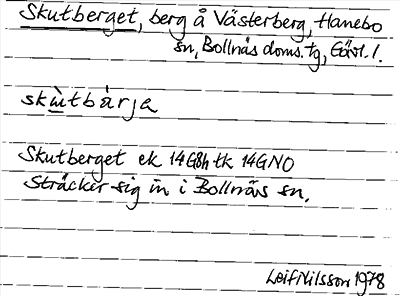 Skutberget, berg å Västerberg, Hanebo
sn, Bollnäs doms. tg, Gävl. l.
skùtbàrja
Skutberget ek 14G8h tk 14GNO
Sträcker sig in i Bollnäs sn.
Leif Nilsson 1978